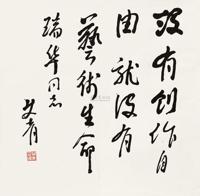 没有创作自
由就没有
艺术生命
瑞华同志
艾青